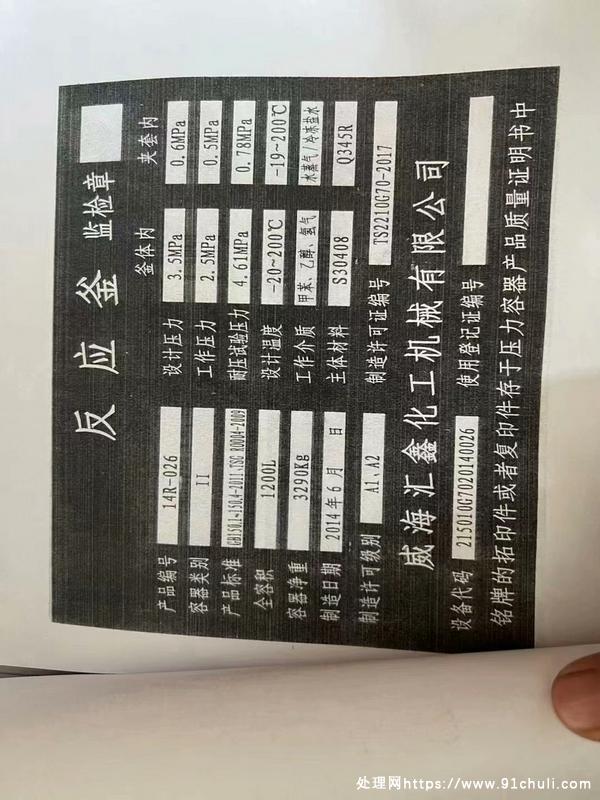 反应釜 监检章
釜体内 夹套内
产品编号 14R-026 设计压力 3.5MPa 0.6MPa
容器类别 II 工作压力 2.5MPa 0.5MPa
产品标准 GB150.1~150.4-2011.TSG R0004-2009 耐压试验压力 4.61MPa 0.78MPa
全容积 1200L 设计温度 -20~200℃ -19~200℃
容器净重 3290Kg 工作介质 甲苯、乙醇、氢气 水蒸气/冷冻盐水
制造日期 2014年6月 日 主体材料 S30408 Q345R
制造许可级别 A1、A2 制造许可证编号 TS2210G70-2017
威海汇鑫化工机械有限公司
设备代码 215010G7020140026 使用登记证编号
铭牌的拓印件或者复印件存于压力容器产品质量证明书中
处理网https://www.91chuli.com